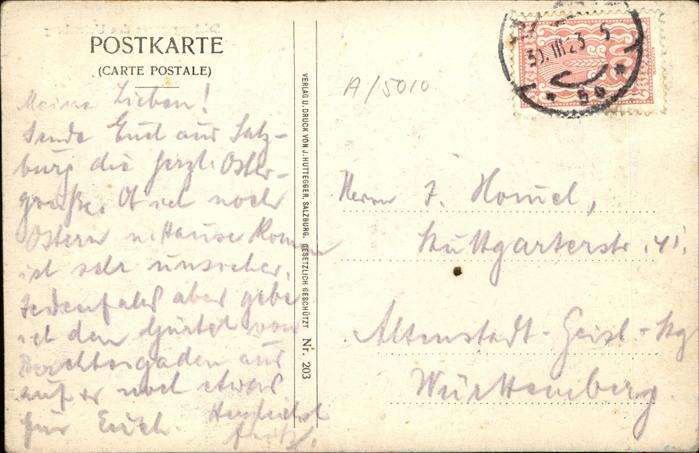 POSTKARTE
(CARTE POSTALE)
Meine Lieben!
Sende Euch aus Salz-
burg die herzl. Oster-
grüße. Ob ich noch
Ostern n. Hause komme
ist sehr unsicher.
Jedenfalls aber gebe
ich den von
Berchtesgaden aus
auf er noch etwas
für Euch. Herzlichst
Fritz.
VERLAG U. DRUCK VON J. HUTTEGGER, SALZBURG. GESETZLICH GESCHÜTZT Nr. 203
A/5010
30.III.23 5
Herrn J.
Stuttgarterstr. 41.
Altenstadt-Geisl-
Württemberg